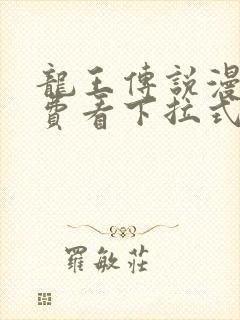 龍王傳說漫
費看下拉式
羅敏莊